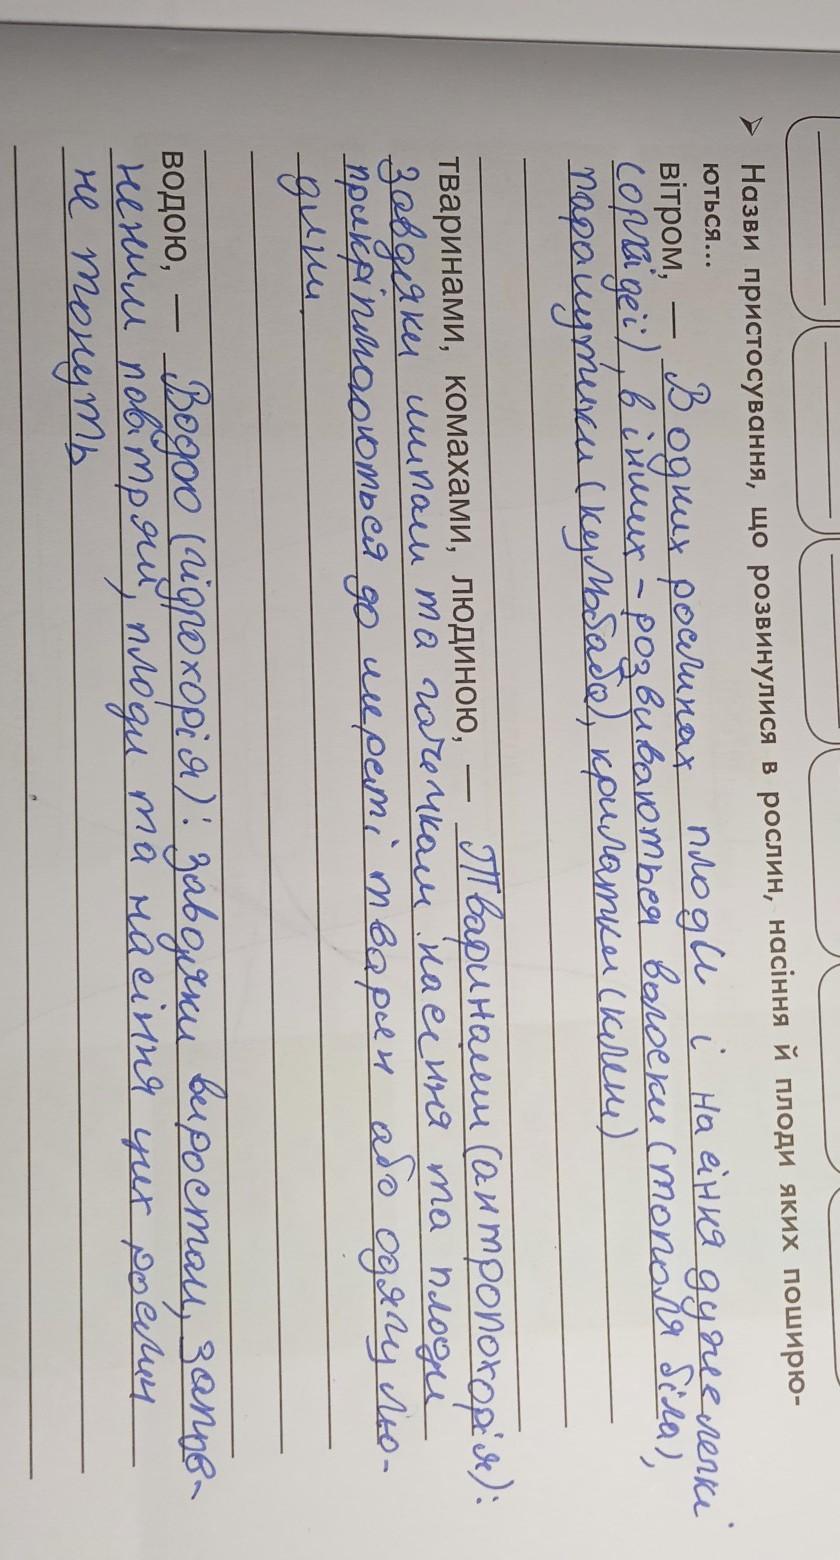 ➢ Назви пристосування, що розвинулися в рослин, насіння й плоди яких поширю-
ються...
вітром, — В одних рослинах плоди і насіння дуже легкі
(орхідеї), в інших - розвиваються волоски (тополя біла),
парашутики (кульбаба), крилатки (клен)
тваринами, комахами, людиною, — Тваринами (антропохорія):
завдяки шипам та гачечкам насіння та плоди
прикріплюються до шерсті тварин або одягу лю-
дини.
водою, — Водою (гідрохорія): завдяки виростам, запов-
неними повітрям, плоди та насіння цих рослин
не тонуть